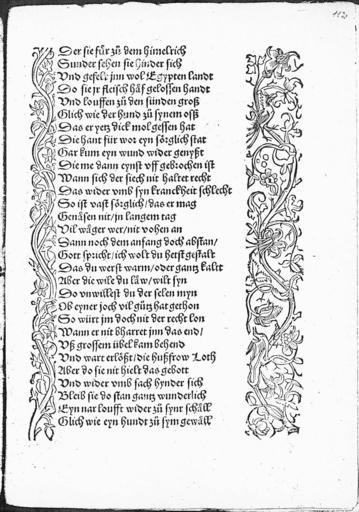 112
Der sie für zů dem himelrich
Sunder sehen sie hinder sich
Und gefelt jnn wol Egypten landt
Do sie jr fleisch häf gelossen handt
Und louffen zů den sünden groß
Glich wie der hund zů synem oß
Das er yetz dick mol gessen hat
Die hant für wor eyn sörglich stat
Gar kum eyn wund wider genyßt
Die me dann eynst uff gebrochen ist
Wann sich der siech nit haltet recht
Das wider umb syn kranckheit schlecht
So ist vast sörglich / das er mag
Genäsen nit / jn langem tag
Vil wäger wer / nit vohen an
Dann noch dem anfang doch abstan /
Gott spricht / ich wolt du hetst gestalt
Das du werst warm / oder gantz kalt
Aber die wile du läw / wilt syn
Do unwillest du der selen myn
Ob eyner joch vil gůtz hat gethon
So würt jm doch nit der recht lon
Wann er nit bharret jnn das end /
Uß grossem übel kam behend
Und wart erlößt / die hußfrow Loth
Aber do sie nit hielt das gebott
Und wider umb sach hynder sich
Bleib sie do stan gantz wunderlich
Eyn nar loufft wider zů synr schäll
Glich wie eyn hundt zů sym gewäll